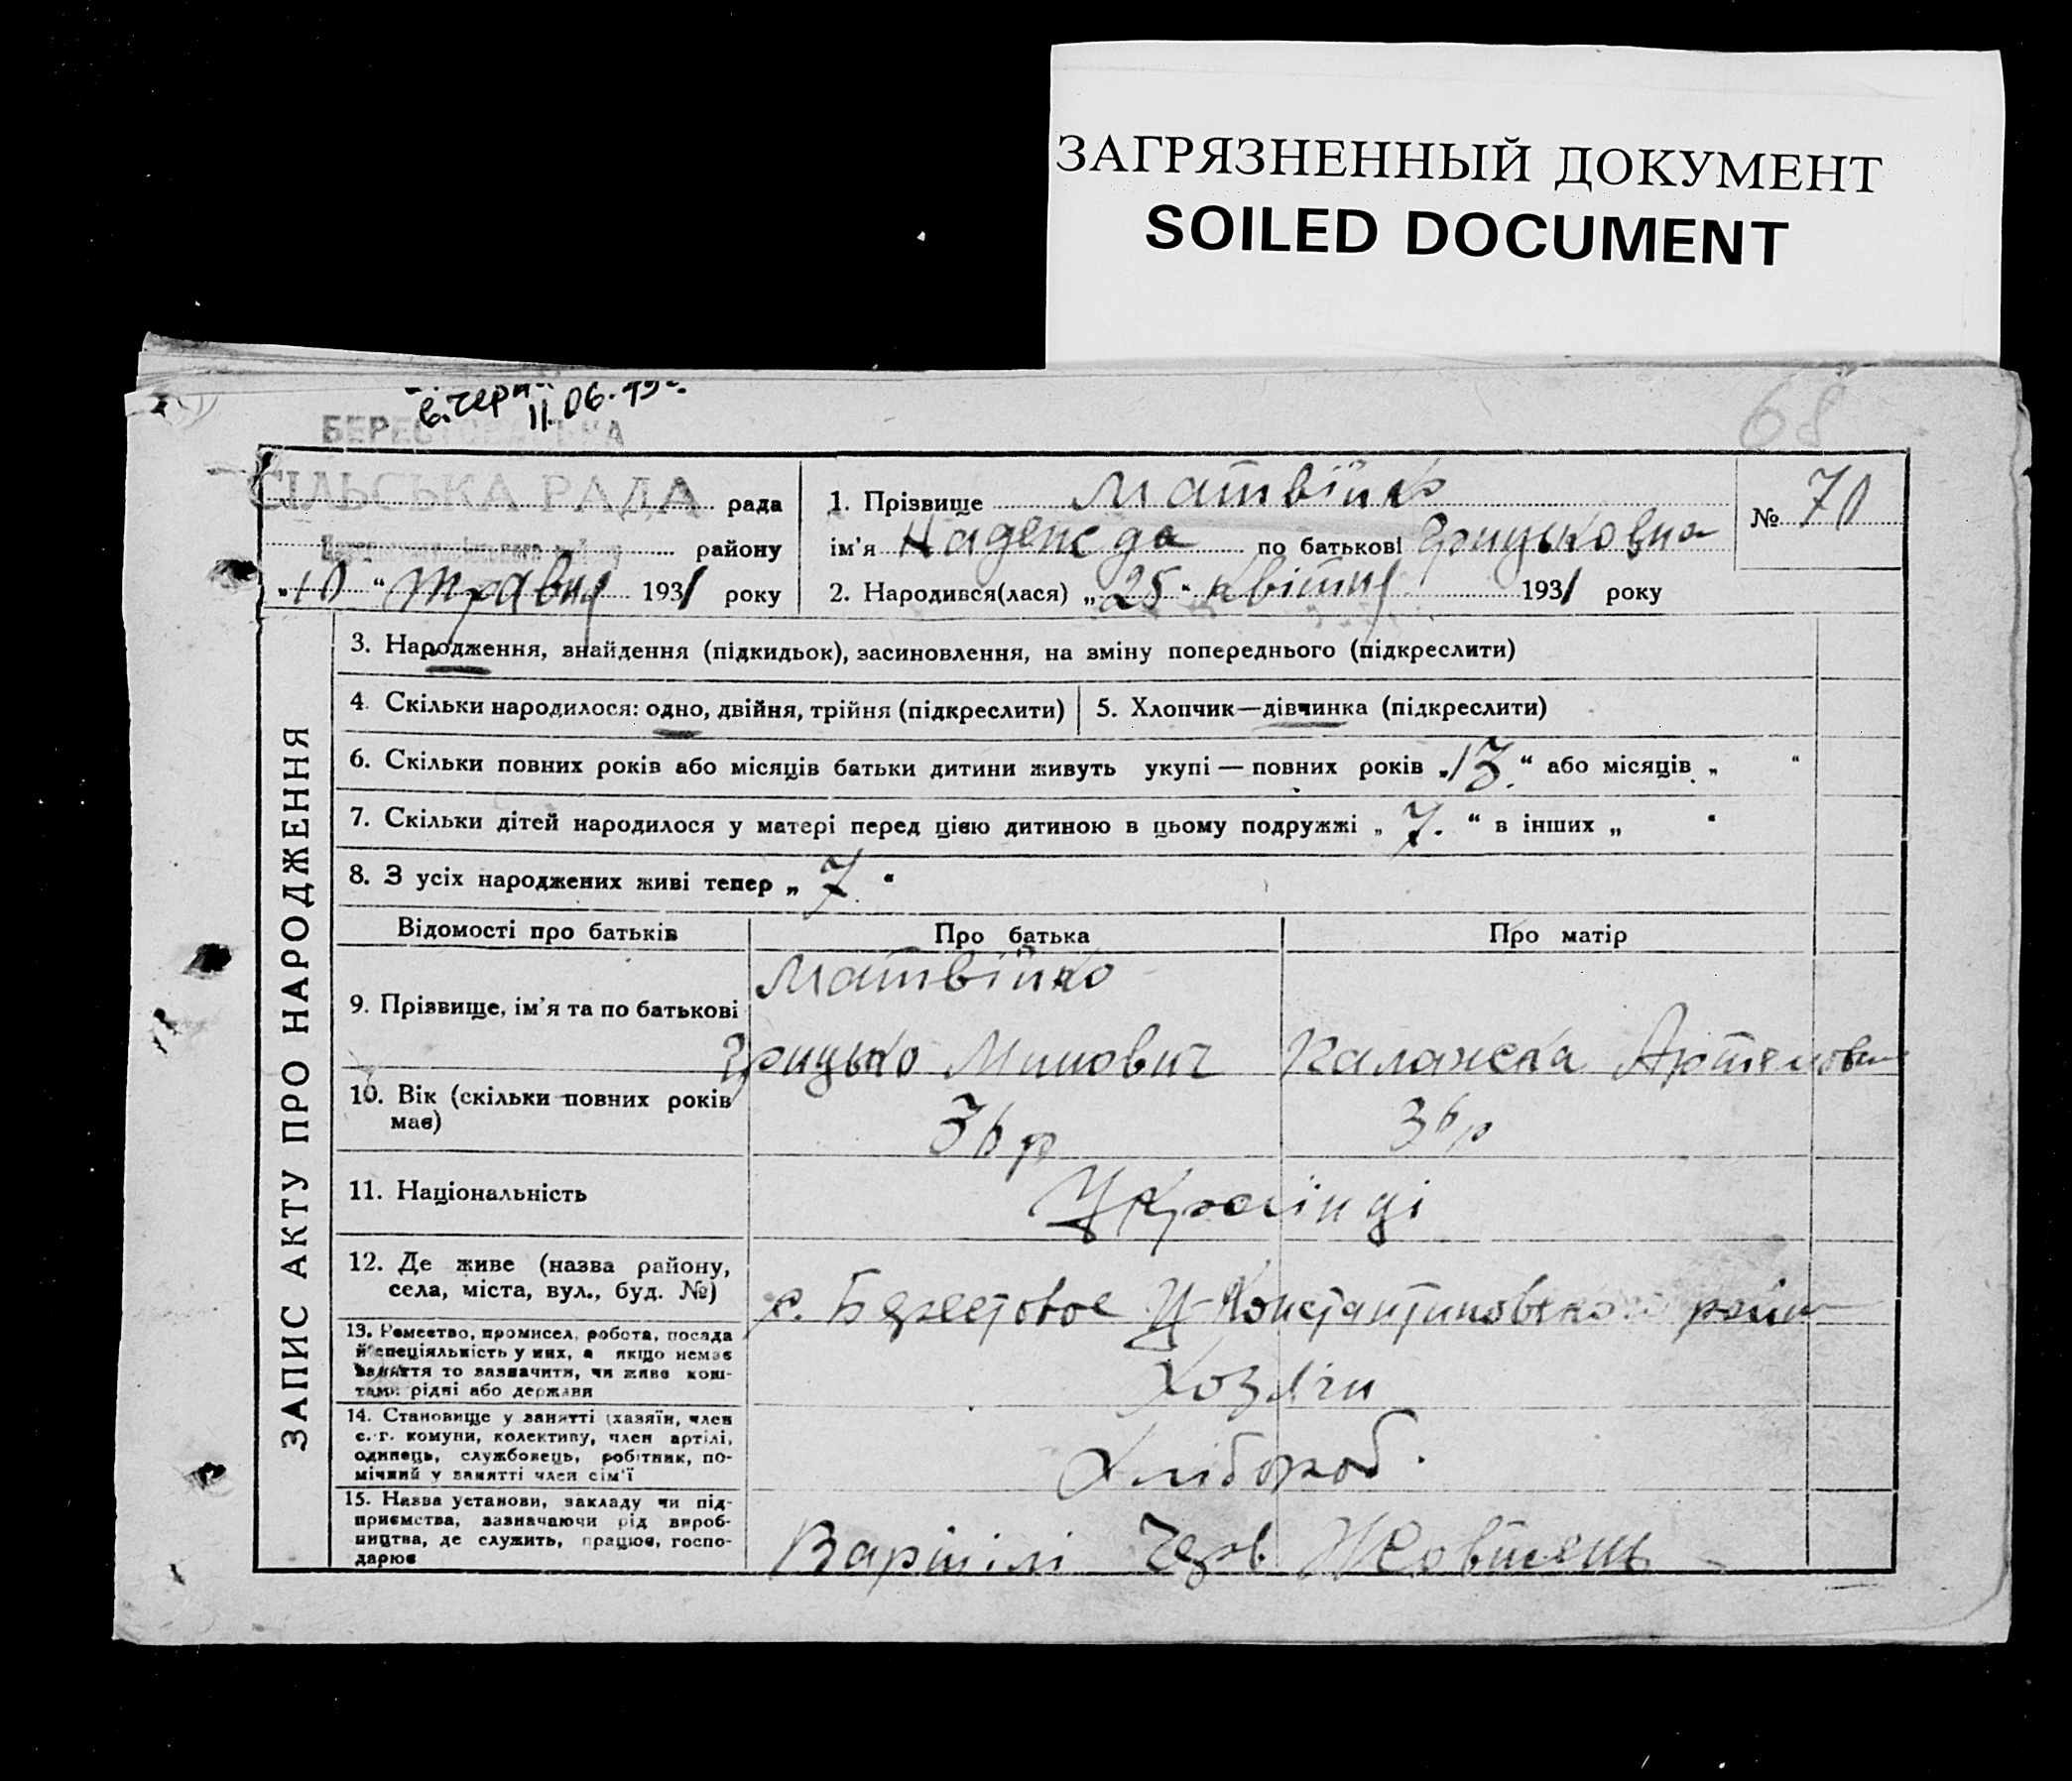 ЗАГРЯЗНЕННЫЙ ДОКУМЕНТ
SOILED DOCUMENT
11.06.
68
СІЛЬСЬКА РАДА рада
району
„10“ травня 1931 року
1. Прізвище Матвійко
ім'я Надежда по батькові Грицьковна
2. Народився(лася) „25“ квітня 1931 року
№ 70
ЗАПИС АКТУ ПРО НАРОДЖЕННЯ
3. Народження, знайдення (підкидьок), засиновлення, на зміну попереднього (підкреслити)
4. Скільки народилося: одно, двійня, трійня (підкреслити)
5. Хлопчик—дівчинка (підкреслити)
6. Скільки повних років або місяців батьки дитини живуть укупі — повних років „13.“ або місяців „ “
7. Скільки дітей народилося у матері перед цією дитиною в цьому подружжі „7.“ в інших „ “
8. З усіх народжених живі тепер „7“
Відомості про батьків
Про батька
Про матір
9. Прізвище, ім'я та по батькові
Матвійко
Грицько Минович
Палажка Артемовна
10. Вік (скільки повних років має)
36 р
36 р
11. Національність
Українці
12. Де живе (назва району,
села, міста, вул., буд. №)
с. Берестовое район
13. Ремество, промисел, робота, посада
й спеціяльність у них, а якщо немає
заняття то зазначити, чи живе кош-
тами рідні або держави
14. Становище у занятті (хазяїн, член
с.-г. комуни, колективу, член артілі,
одинець, службовець, робітник, по-
мічний у занятті член сім'ї
Хлібороб.
15. Назва установи, закладу чи під-
приємства, зазначаючи рід вироб-
ництва, де служить, працює, госпо-
дарює
Вартілі Черв Жовтень